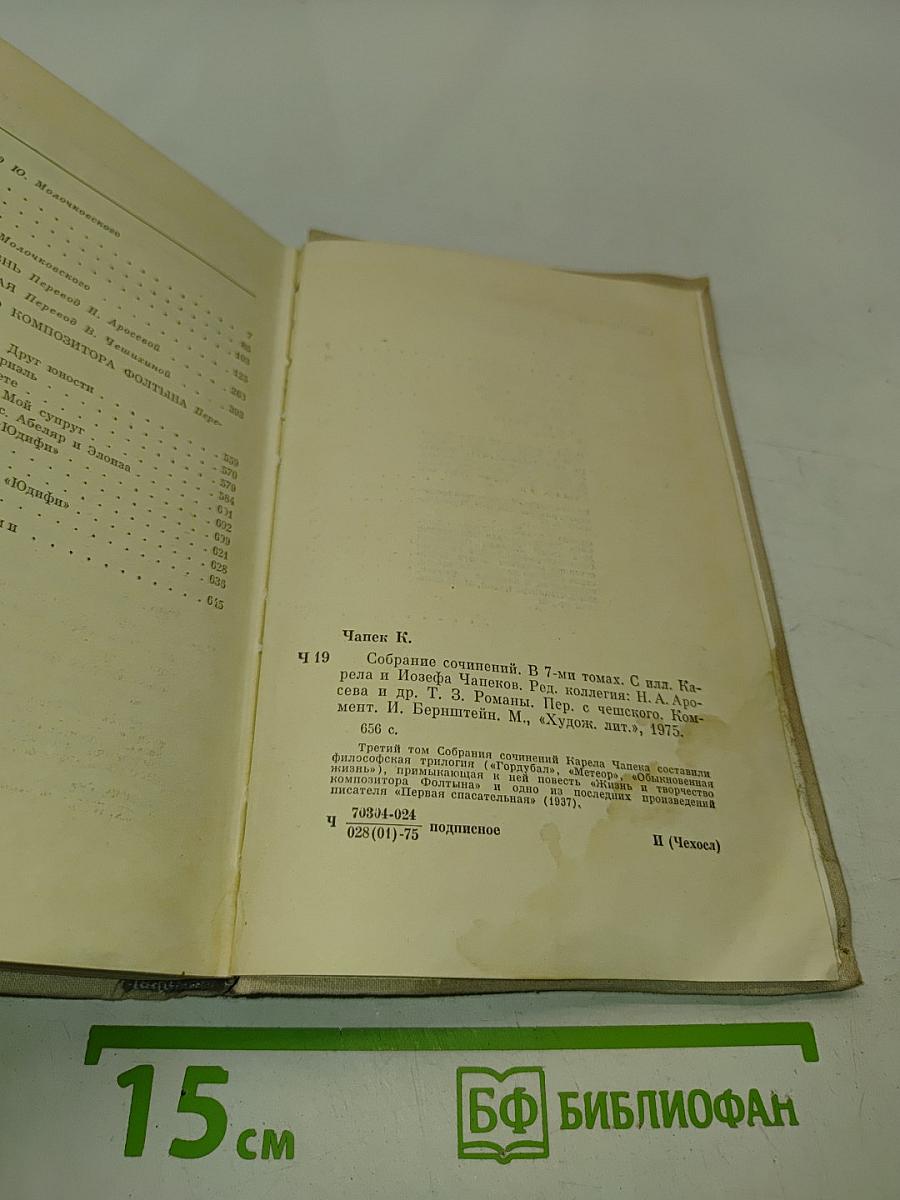 Ю. Молочковского
Молочковского
7
НЬ Перевод Н. Аросевой
АЯ Перевод В. Чешихиной
103
125
КОМПОЗИТОРА ФОЛТЫНА Пере-
263
393
Друг юности
риаль
ете
Мой супруг
с. Абеляр и Элоиза
Юдифи»
«Юдифи»
и и
559
570
579
584
601
602
609
621
628
636
645
Чапек К.
Ч 19 Собрание сочинений. В 7-ми томах. С илл. Ка-
рела и Иозефа Чапеков. Ред. коллегия: Н. А. Аро-
сева и др. Т. 3. Романы. Пер. с чешского. Ком-
мент. И. Бернштейн. М., «Худож. лит.», 1975.
656 с.
Третий том Собрания сочинений Карела Чапека составили
философская трилогия («Гордубал», «Метеор», «Обыкновенная
жизнь»), примыкающая к ней повесть «Жизнь и творчество
композитора Фолтына» и одно из последних произведений
писателя «Первая спасательная» (1937).
Ч 70304-024
028(01)-75 подписное
И (Чехосл)
15 см
БФ БИБЛИОФАН